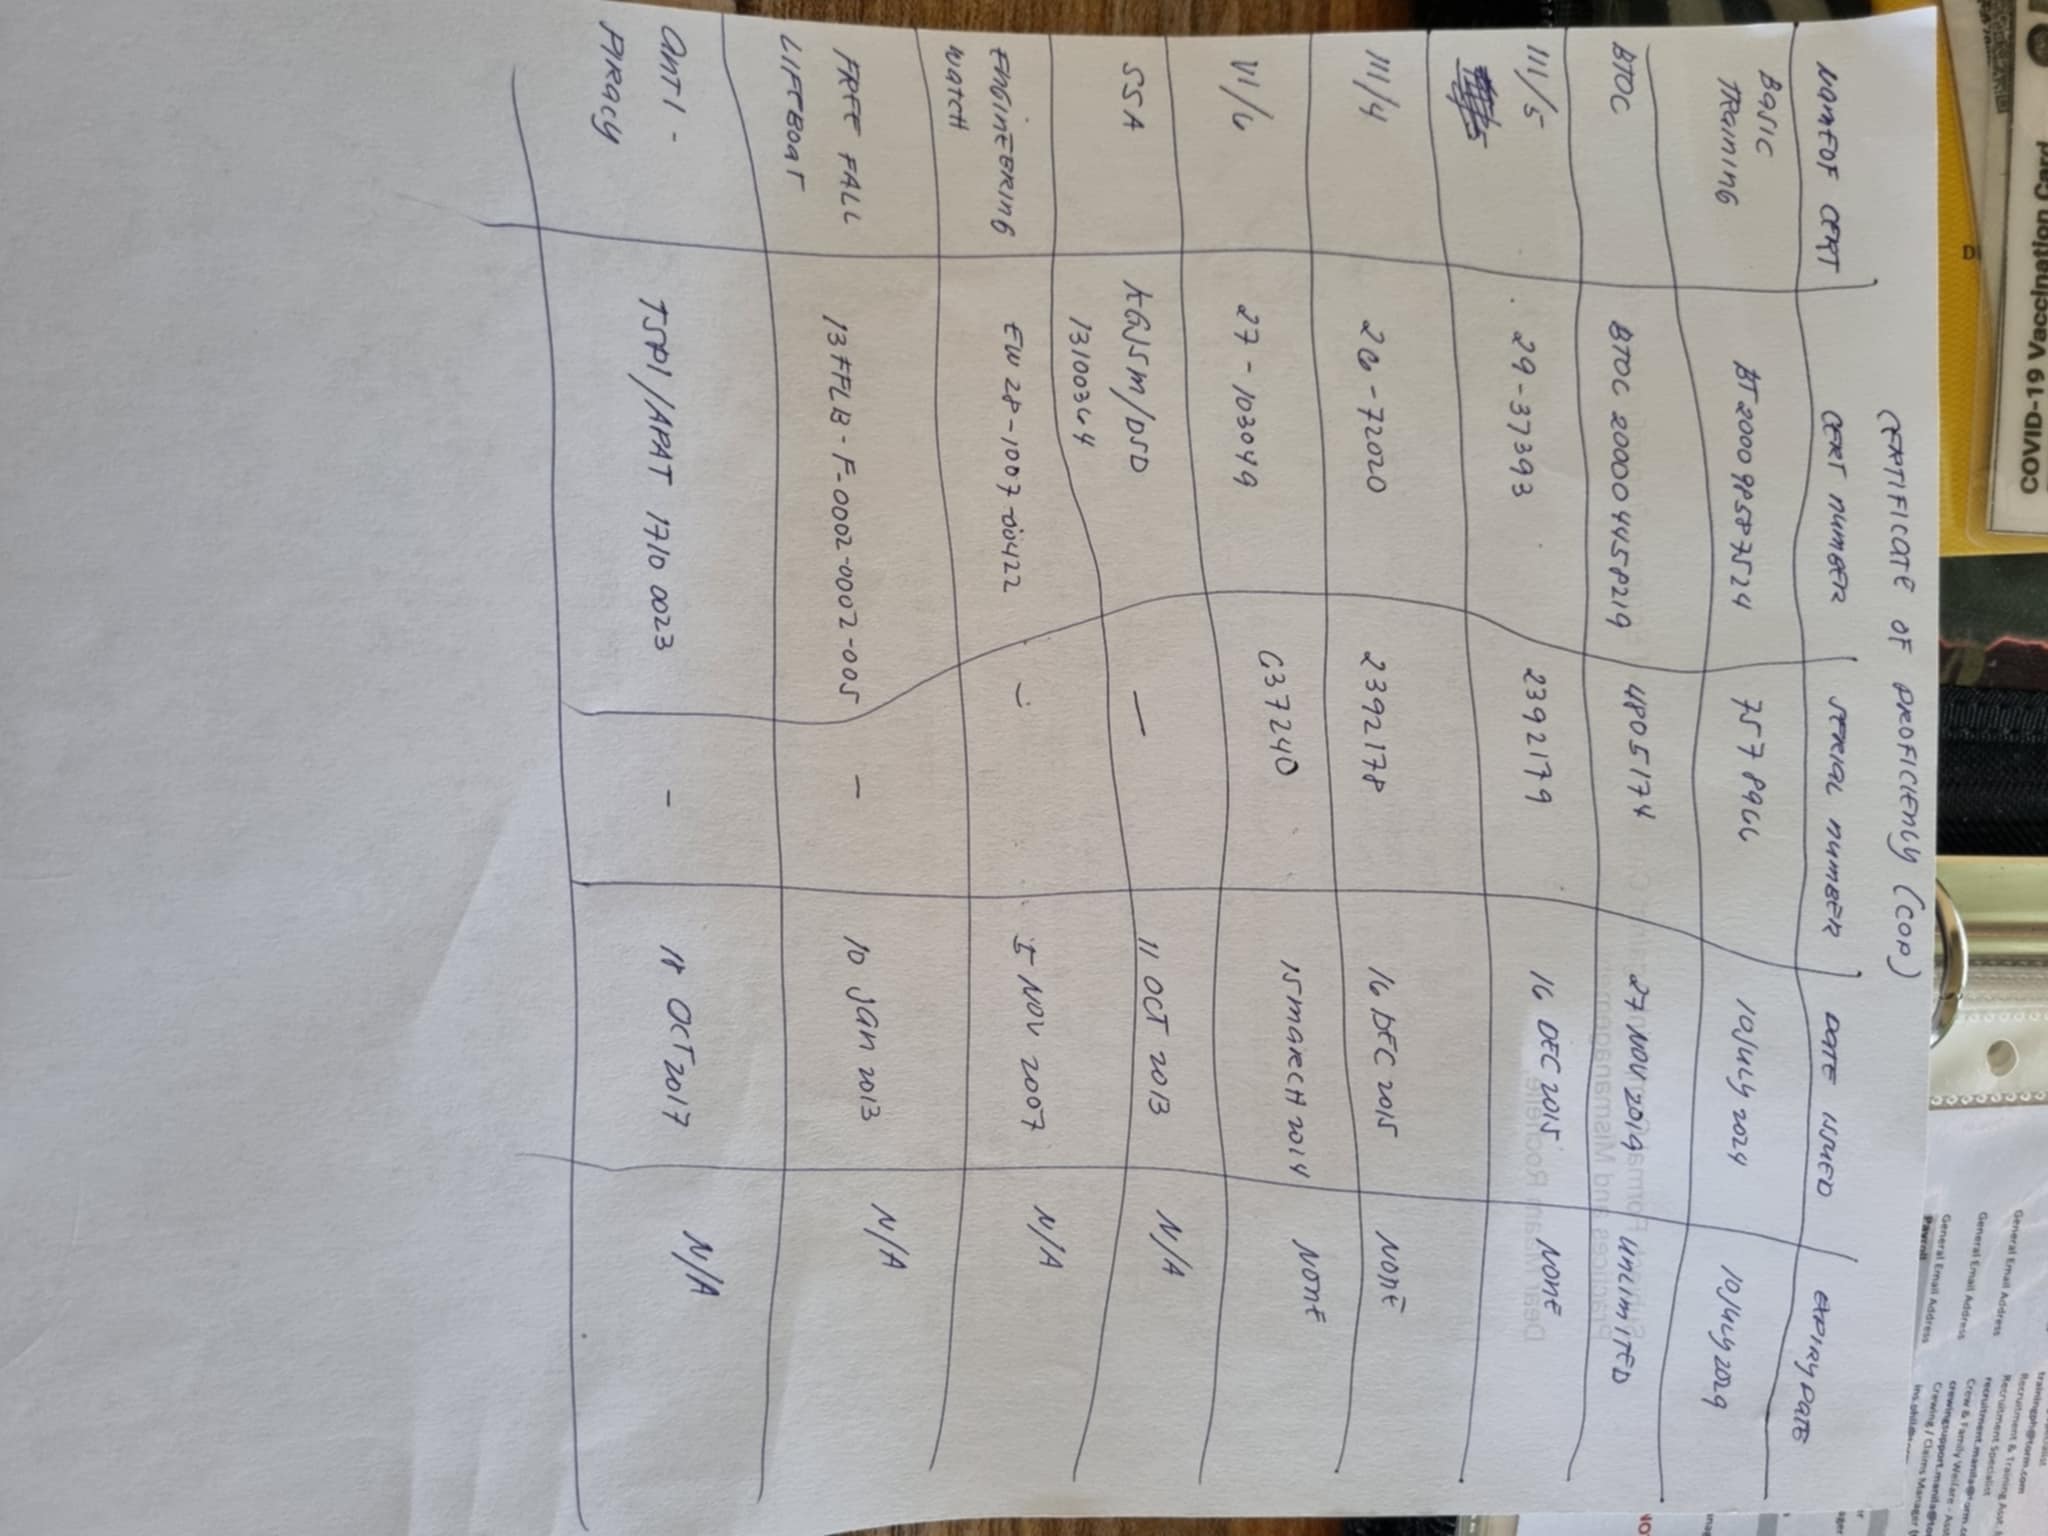 COVID-19 Vaccination Card
trainingph@torm.com
Recruitment & Training Asst.
General Email Address Recruitment Specialist
recruitment.manila@torm.co
General Email Address Crew & Family Welfare - Ass
crewingsupport.manila@tor
General Email Address Crewing / Claims Manager
Payroll
CERTIFICATE OF PROFICIENCY (COP)
NAME OF CERT CERT NUMBER SERIAL NUMBER DATE ISSUED EXPIRY DATE
BASIC TRAINING BT 2000 98587524 7578966 10 JULY 2024 10 JULY 2029
BTOC BTOC 200004458219 4805174 27 NOV 2019 UNLIMITED
III/5 29-37393 2392179 16 DEC 2015 NONE
III/4 26-72020 2392178 16 DEC 2015 NONE
VI/6 27-103049 637240 15 MARCH 2014 NONE
SSA KGJSM/DSD 13100364 — 11 OCT 2013 N/A
ENGINEERING WATCH EW 28-1007-00422 - 5 NOV 2007 N/A
FREE FALL LIFEBOAT 13FFLB-F-0002-0002-005 - 10 JAN 2013 N/A
ANTI-PIRACY TSPI/APAT 1710 0023 - 18 OCT 2017 N/A